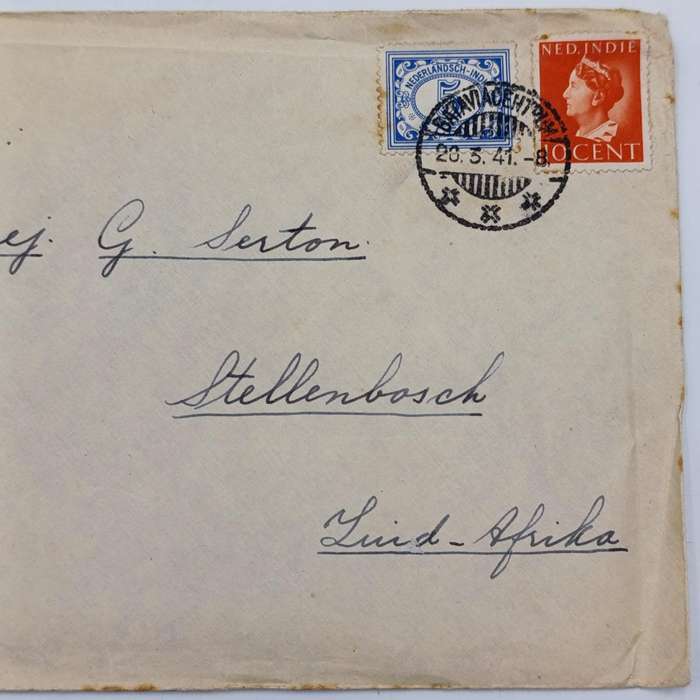 NEDERLANDSCH-INDIË
5
NED. INDIE
10 CENT
BATAVIACENTRUM
28.3.41.-8
ej. G. Serton.
Stellenbosch
Zuid-Afrika